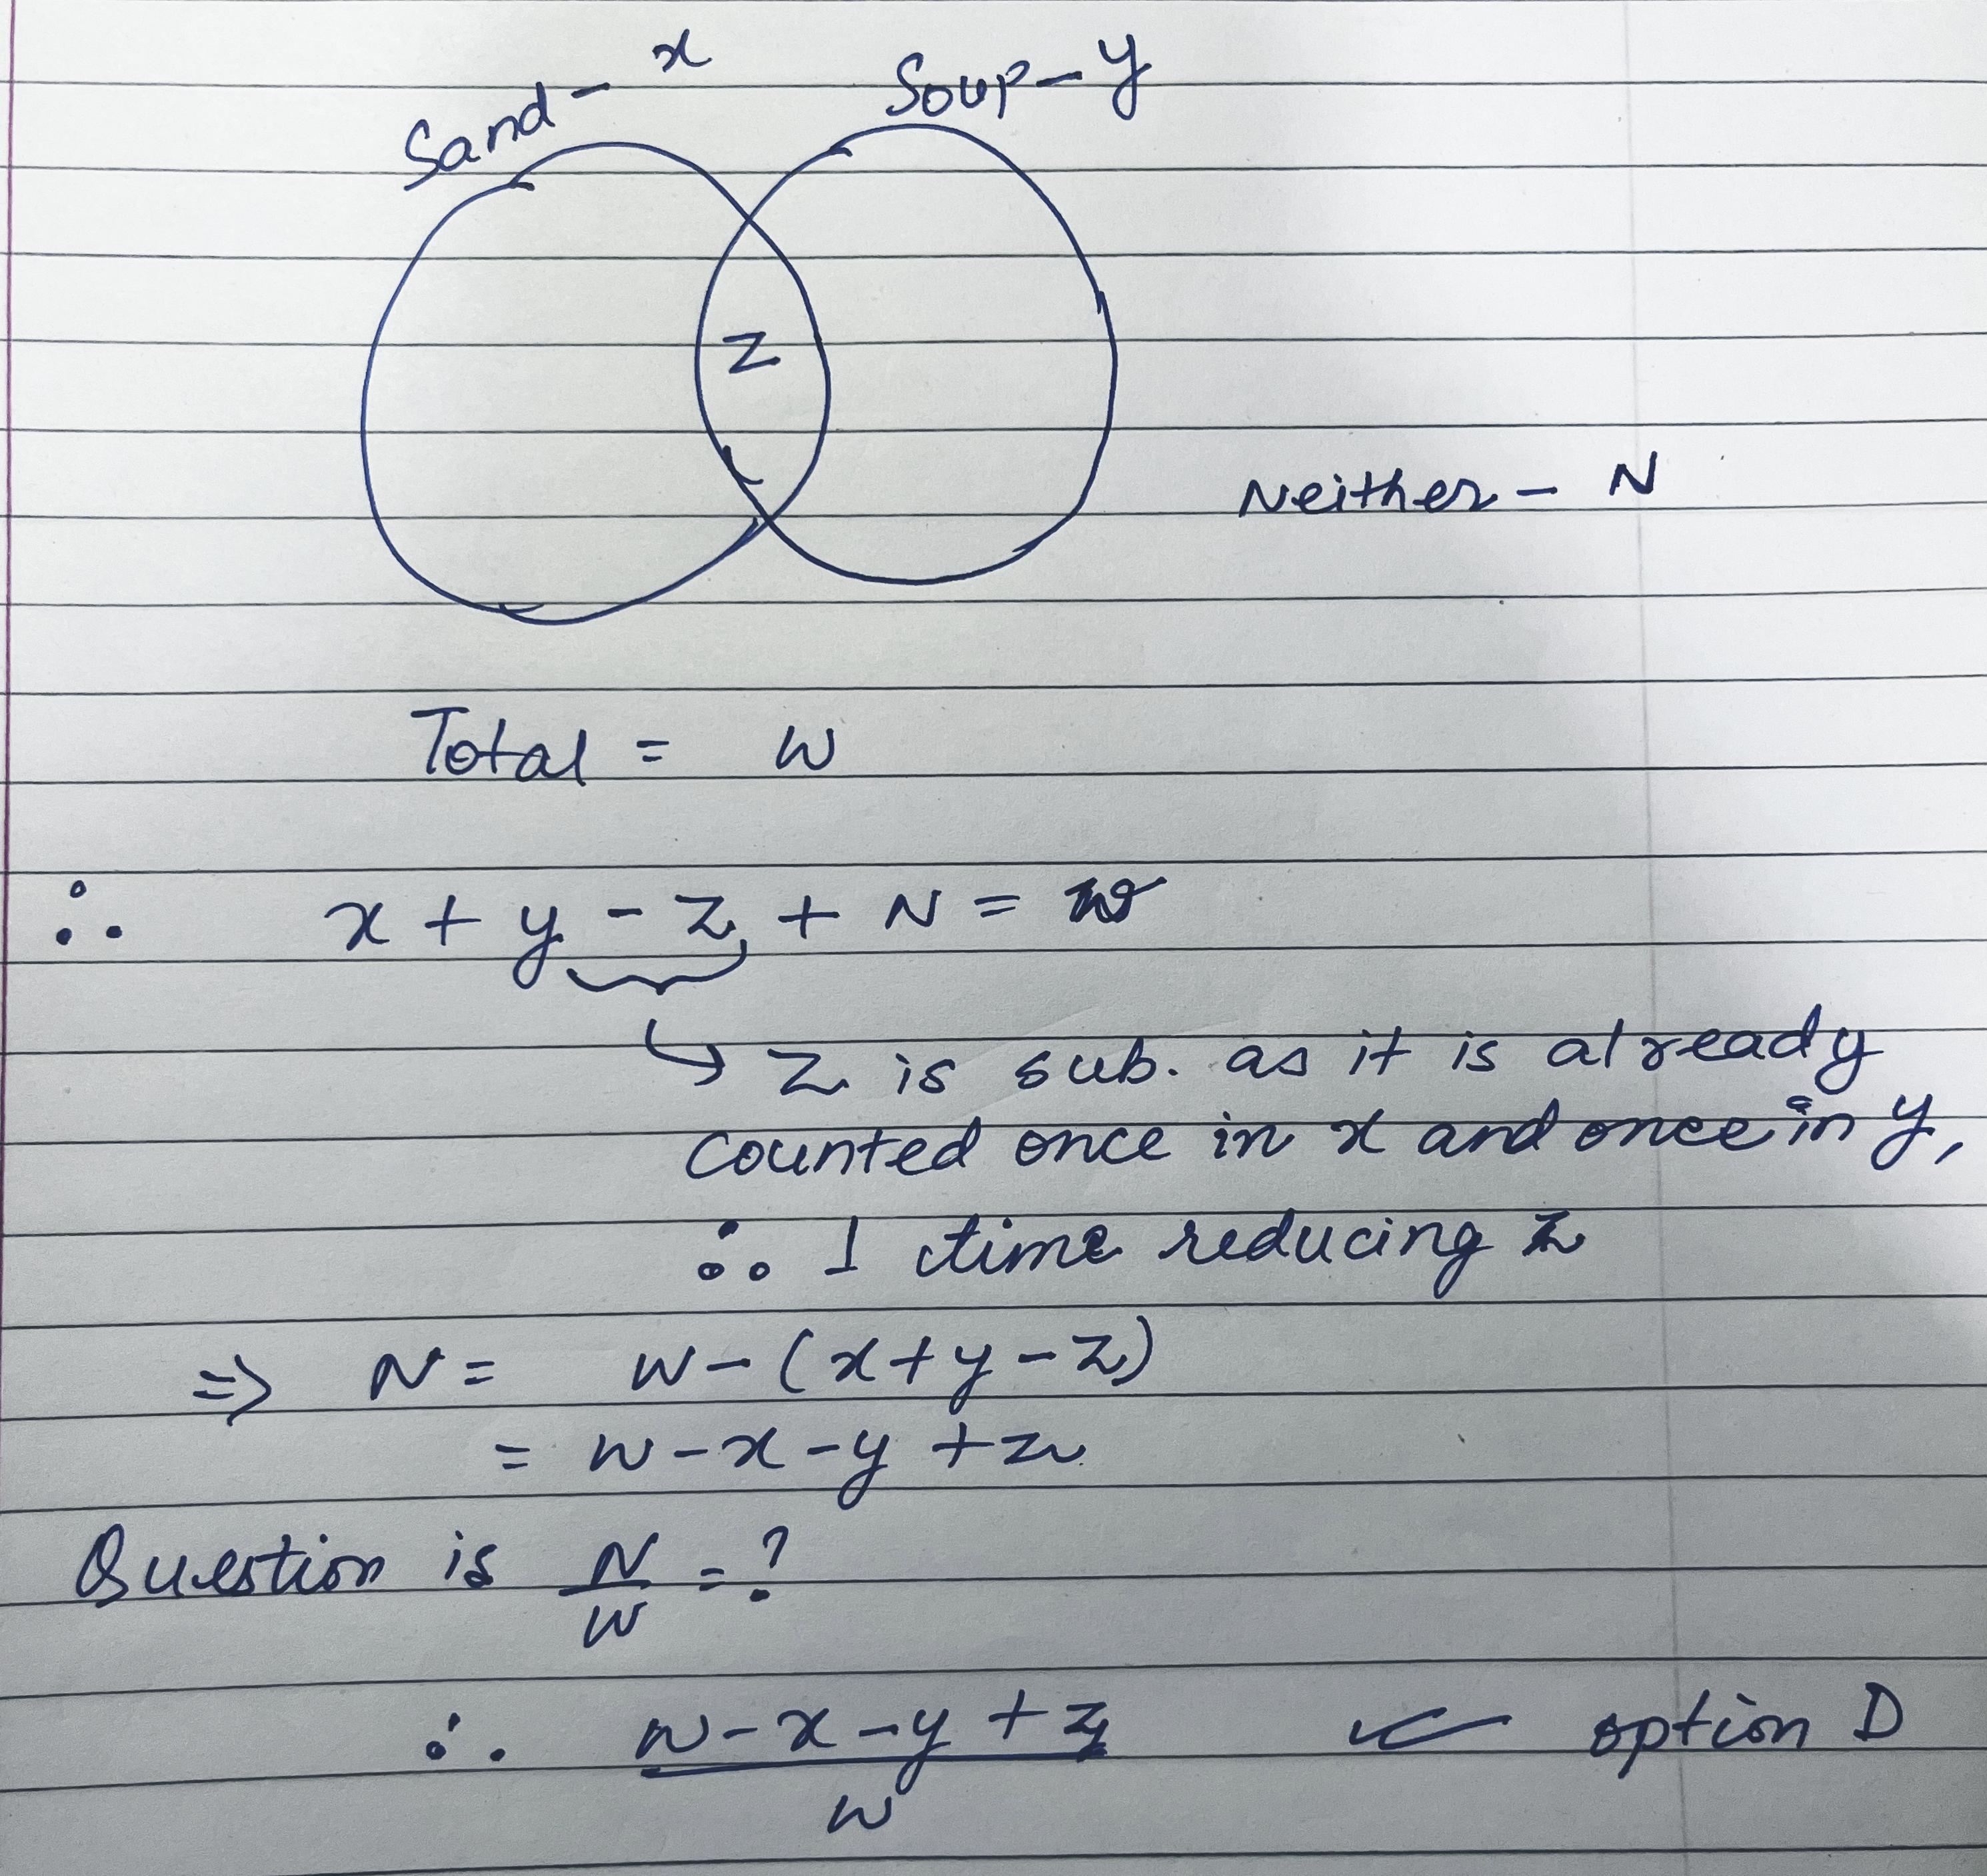 Sand - x
Soup - y
z
Neither - N
Total = w
∴ x + y - z + N = w
↳ z is sub. as it is already
counted once in x and once in y,
∴ 1 time reducing z
⇒ N = w - (x + y - z)
= w - x - y + z
Question is N/w = ?
∴ (w - x - y + z)/w ✓ option D